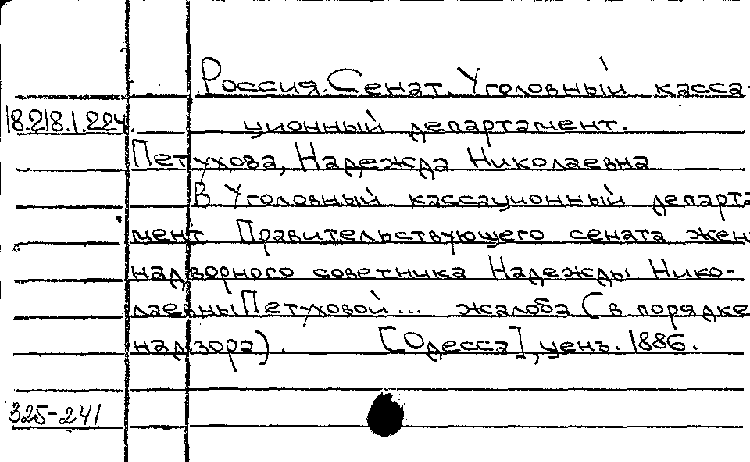 Россия. Сенат. Уголовный касса-
18.218.1.224. ционный департамент.
Петухова, Надежда Николаевна
В Уголовный кассационный департа
мент Правительствующего сената жен
надворного советника Надежды Нико-
лаевны Петуховой... жалоба (в порядке
надзора). [Одесса], ценз. 1886.
325-241